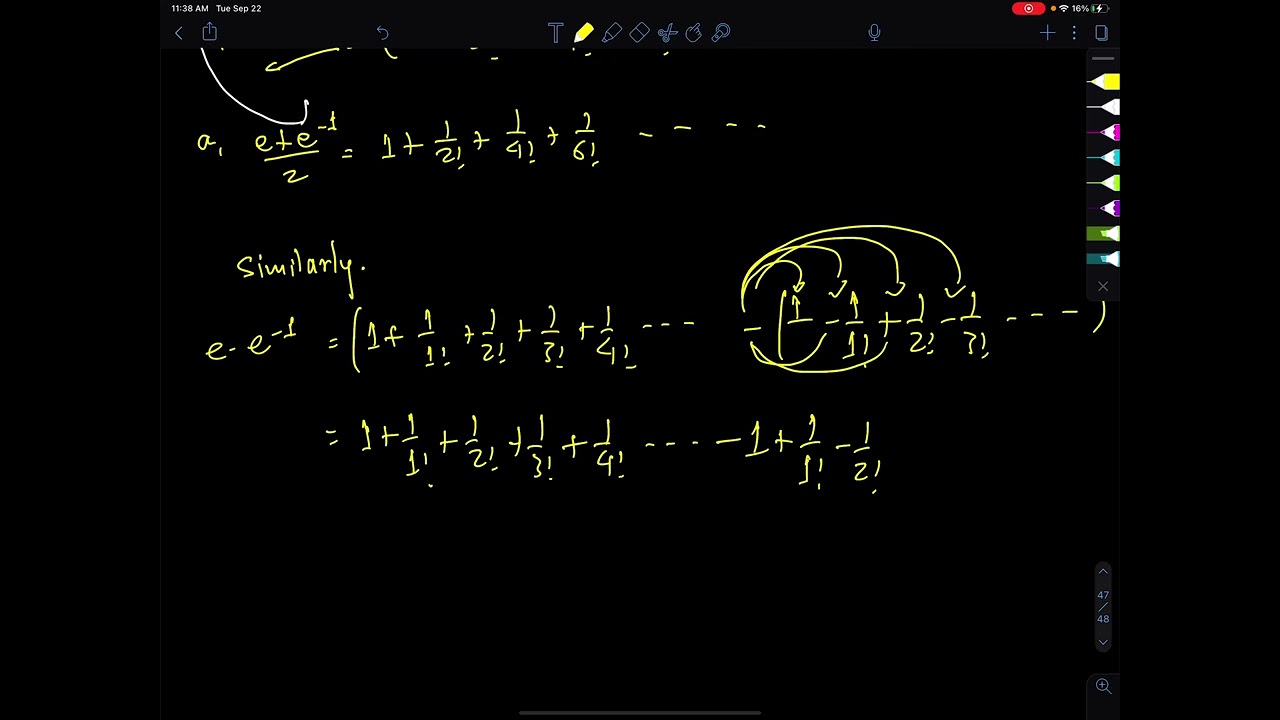 11:38 AM Tue Sep 22 16%
a, (e+e^-1)/2 = 1 + 1/2! + 1/4! + 1/6! - - - -
Similarly.
e - e^-1 = (1 + 1/1! + 1/2! + 1/3! + 1/4! - - - - (1 - 1/1! + 1/2! - 1/3! - - - - )
= 1 + 1/1! + 1/2! + 1/3! + 1/4! - - - - - 1 + 1/1! - 1/2!
47
/
48